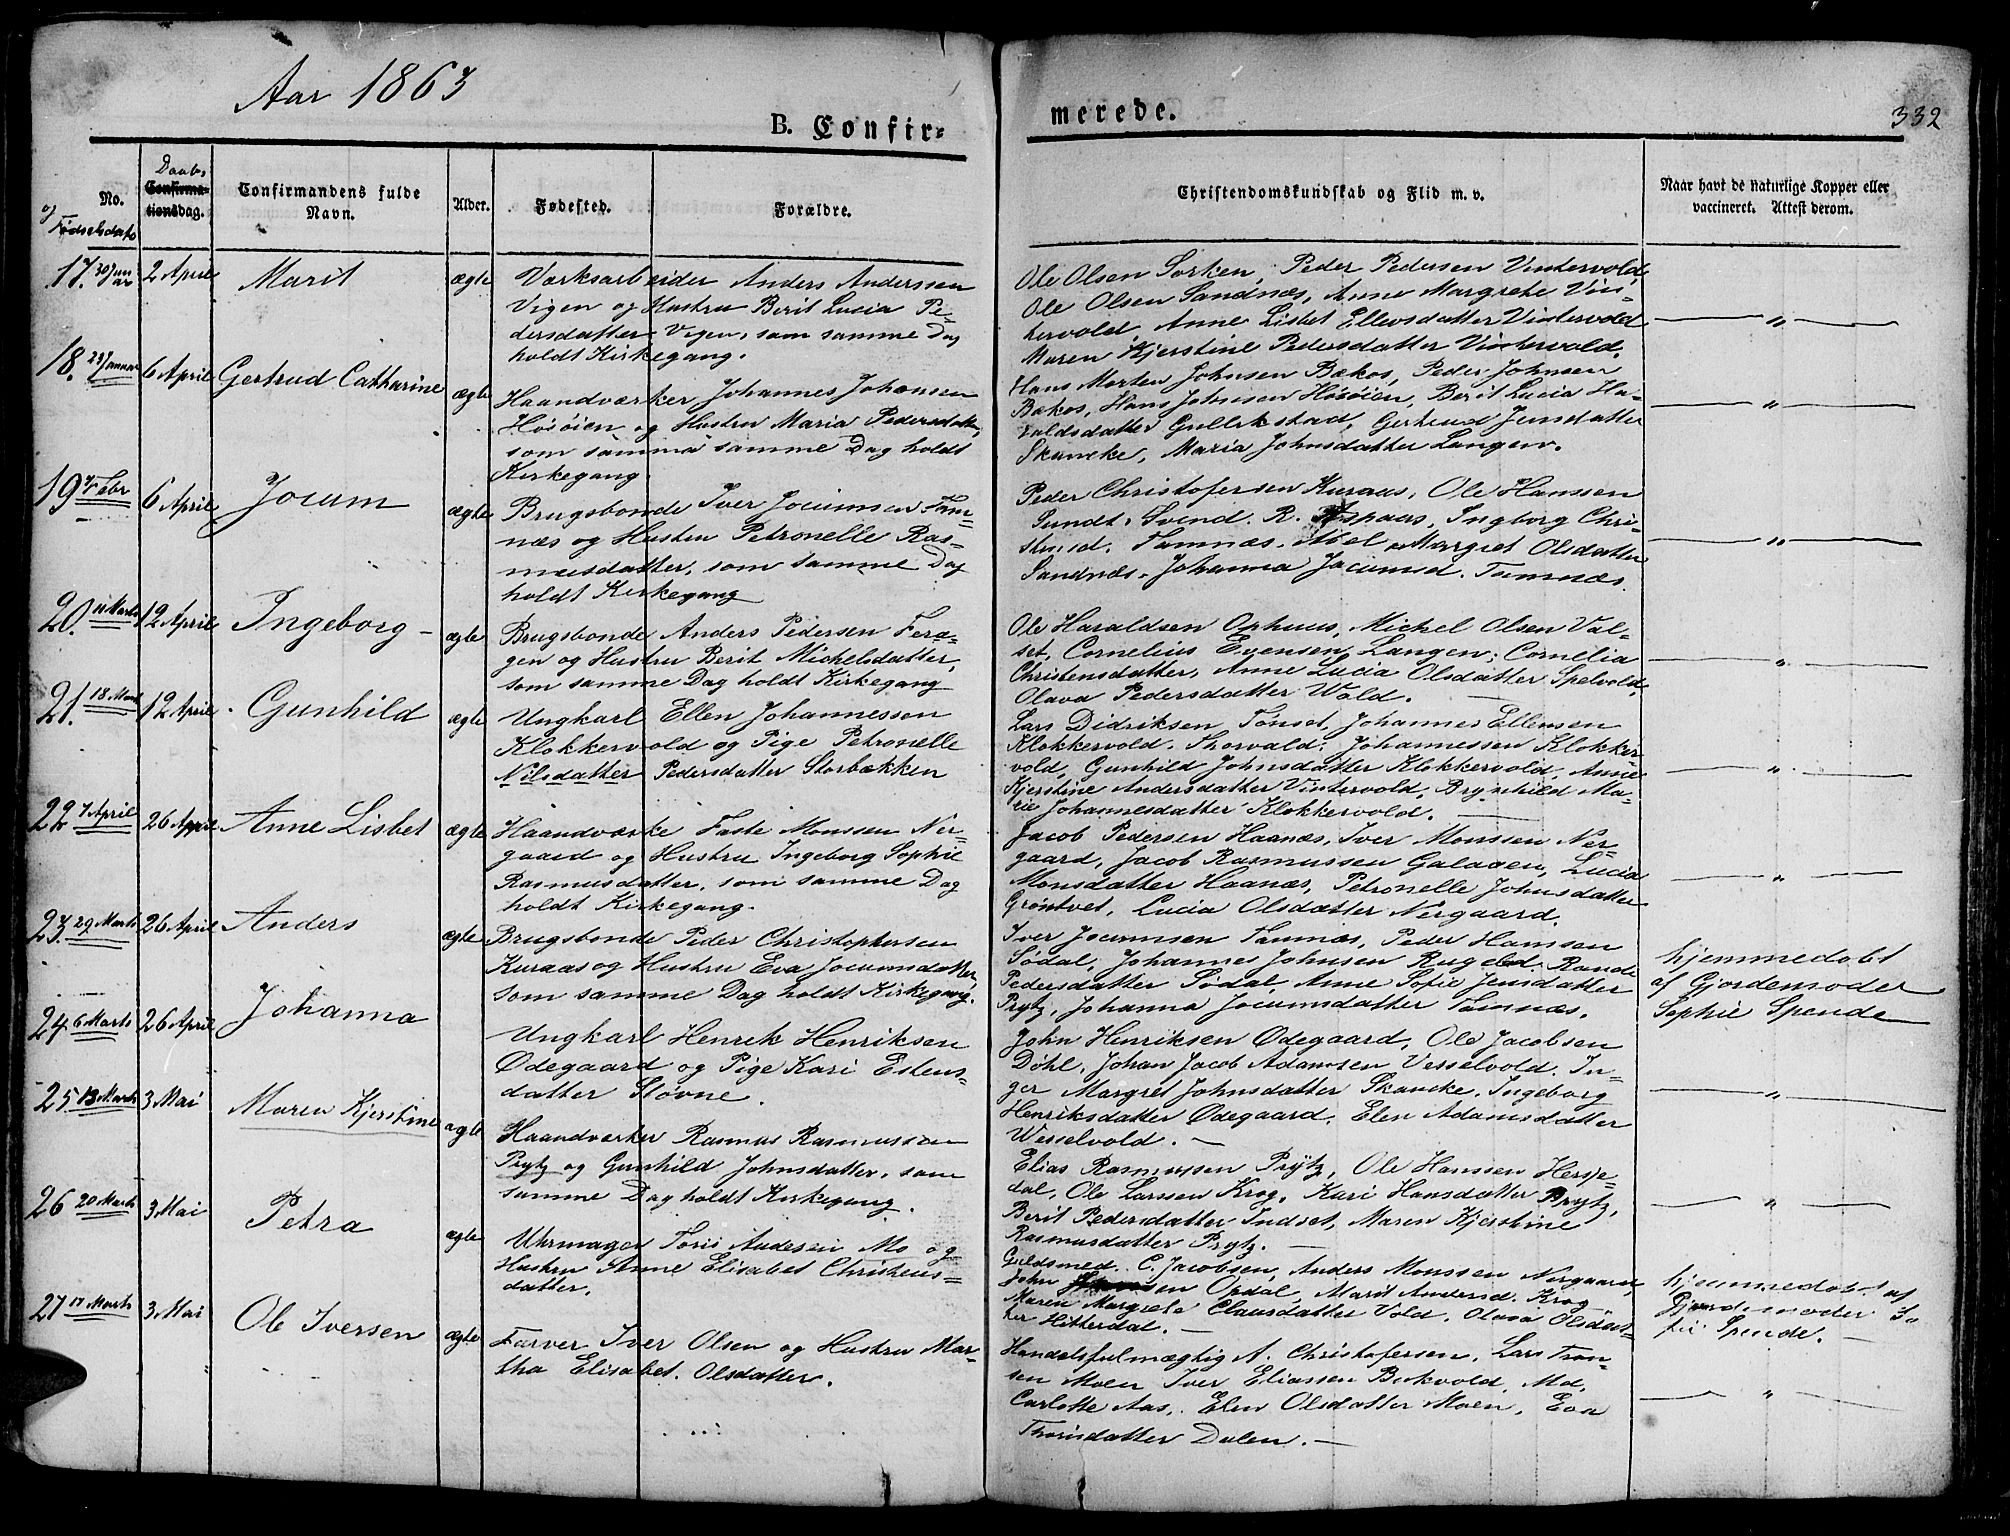 Aar 1863
B. Confir-
merede.
332
No.
og Fødselsdato
Daabs
Confirma-
tionsdag.
Confirmandens fulde
Navn.
Alder.
Fødested.
Forældre.
Christendomskundskab og Flid m. v.
Naar havt de naturlige Kopper eller
vaccineret. Attest derom.
17. 30 Januar
2 April
Marit
ægte
Værksarbeider Anders Anderssen
Vigen og Hustru Berit Lucia Pe-
dersdatter Vigen, som samme Dag
holdt Kirkegang.
Ole Olsen Sorken, Peder Pedersen Vintervold,
Ole Olsen Sandnæs, Anne Margrete Vin-
tervold Anne Lisbet Ellevsdatter Vintervold
Maren Kjerstine Pedersdatter Vintervold.
— " —
18. 23 Januar
6 April
Gertrud Catharine
ægte
Haandværker Johannes Johansen
Høsøien og Hustru Maria Pedersdatter,
som samma samme Dag holdt
Kirkegang.
Hans Morten Johnsen Bækos, Peder Johnsen
Bækos, Hans Johnsen Høsøien, Berit Lucia Ha-
raldsdatter Gullikstad, Gertrud Jensdatter
Skancke, Maria Johnsdatter Langen.
— " —
19 4 Febr
6 April
Jocum
ægte
Brugsbonde Iver Jocumsen Tam-
næs og Hustru Petronelle Ras-
musdatter, som samme Dag
holdt Kirkegang
Peder Christofersen Kuraas, Ole Hanssen
Sundt, Svend. R. Aspaas, Ingborg Chri-
stensd. Tamnæs, Abel Margret Olsdatter
Sandnæs, Johanna Jocumsd. Tamnæs.
— " —
20. 11 Marts
12 April
Ingeborg
ægte
Brugsbonde Anders Pedersen Fera-
gen og Hustru Berit Michelsdatter,
som samme Dag holdt Kirkegang
Ole Haraldsen Ophuus, Michel Olsen Val-
set, Cornelius Evensen Langen; Cornelia
Christensdatter, Anne Lucia Olsdatter Spelvold,
Olava Pedersdatter Wold.
— " —
21. 18 Marts
12 April
Gunhild
ægte
Ungkarl Ellen Johannessen
Klokkervold og Pige Petronelle
Nilsdatter Pedersdatter Storbækken
Lars Didriksen Tønset, Johannes Ellensen
Klokkervold. Thorvald. Johannessen Klokker
vold, Gunhild Johnsdatter Klokkervold, Anne
Kjerstine Andersdatter Vintervold, Brynhild Ma-
rie Johannesdatter Klokkervold.
— " —
22 7 April
26 April
Anne Lisbet
ægte
Haandværke Faste Monssen Ner-
gaard og Hustru Ingeborg Sophie
Rasmusdatter, som samme Dag
holdt Kirkegang.
Jacob Pedersen Haanæs, Iver Monssen Ner-
gaard, Jacob Rasmussen Galaaen, Lucia
Monsdatter Haanæs, Petronelle Johnsdatter
Grøntvet, Lucia Olsdatter Nergaard.
— " —
23. 29 Marts
26 April
Anders
ægte
Brugsbonde Peder Christophersen
Kuraas og Hustru Eva Jocumsdatter,
som samme Dag holdt Kirkegang.
Iver Jocumsen Tamnæs, Peder Hansen
Sødal, Johannes Johnsen Rugeld. Rande
Pedersdatter Sødal, Anne Sofie Jensdatter
Prytz, Johanna Jocumsdatter Tamnæs.
hjemmedøbt
af Gjordemoder
Sophie Spende
24. 6 Marts
26 April
Johanna
Ungkarl Henrik Henriksen
Ødegaard og Pige Kari Estens-
datter Støvne.
John Henriksen Ødegaard, Ole Jacobsen
Döhl, Johan Jacob Adamsen Vesselvold. In-
ger Margret Johnsdatter Skancke, Ingeborg
Henriksdatter Ødegaard, Elen Adamsdatter
Wesselvold.
— " —
25 13 Marts
3 Mai
Maren Kjerstine
ægte
Haandværker Rasmus Rasmussen
Prytz og Gunhild Johnsdatter, som
samme Dag holdt Kirkegang.
Elias Rasmussen Prytz, Ole Hanssen Hersje-
dal, Ole Larssen Krog, Kari Hansdatter Prytz,
Berit Pedersdatter Indset, Maren Kjerstine
Rasmusdatter Prytz.
— " —
26 20 Marts
3 Mai
Petra
ægte
Uhrmager Toris Andersen Mo og
Hustru Anne Elisabet Christens-
datter.
Guldsmed. C. Jacobsen, Anders Monssen Nergaard,
John Opdal, Marit Andersd. Krog
Maren Margrete Clausdatter Vold, Olava Olsdat-
ter Hitterdal.
hjemmedøbt af
Gjordemoder So
fie Spende.
27 17 Marts
3 Mai
Ole Iversen
ægte
Farver Iver Olsen og Hustru Mar-
tha Elisabet. Olsdatter.
Handelsfulmægtig A. Christofersen, Lars Tron-
sen Moen Iver Eliassen Bukvold, Md.
Carlotte Aas, Elen Olsdatter Moen, Eva
Thorisdatter Dalen.
— " —